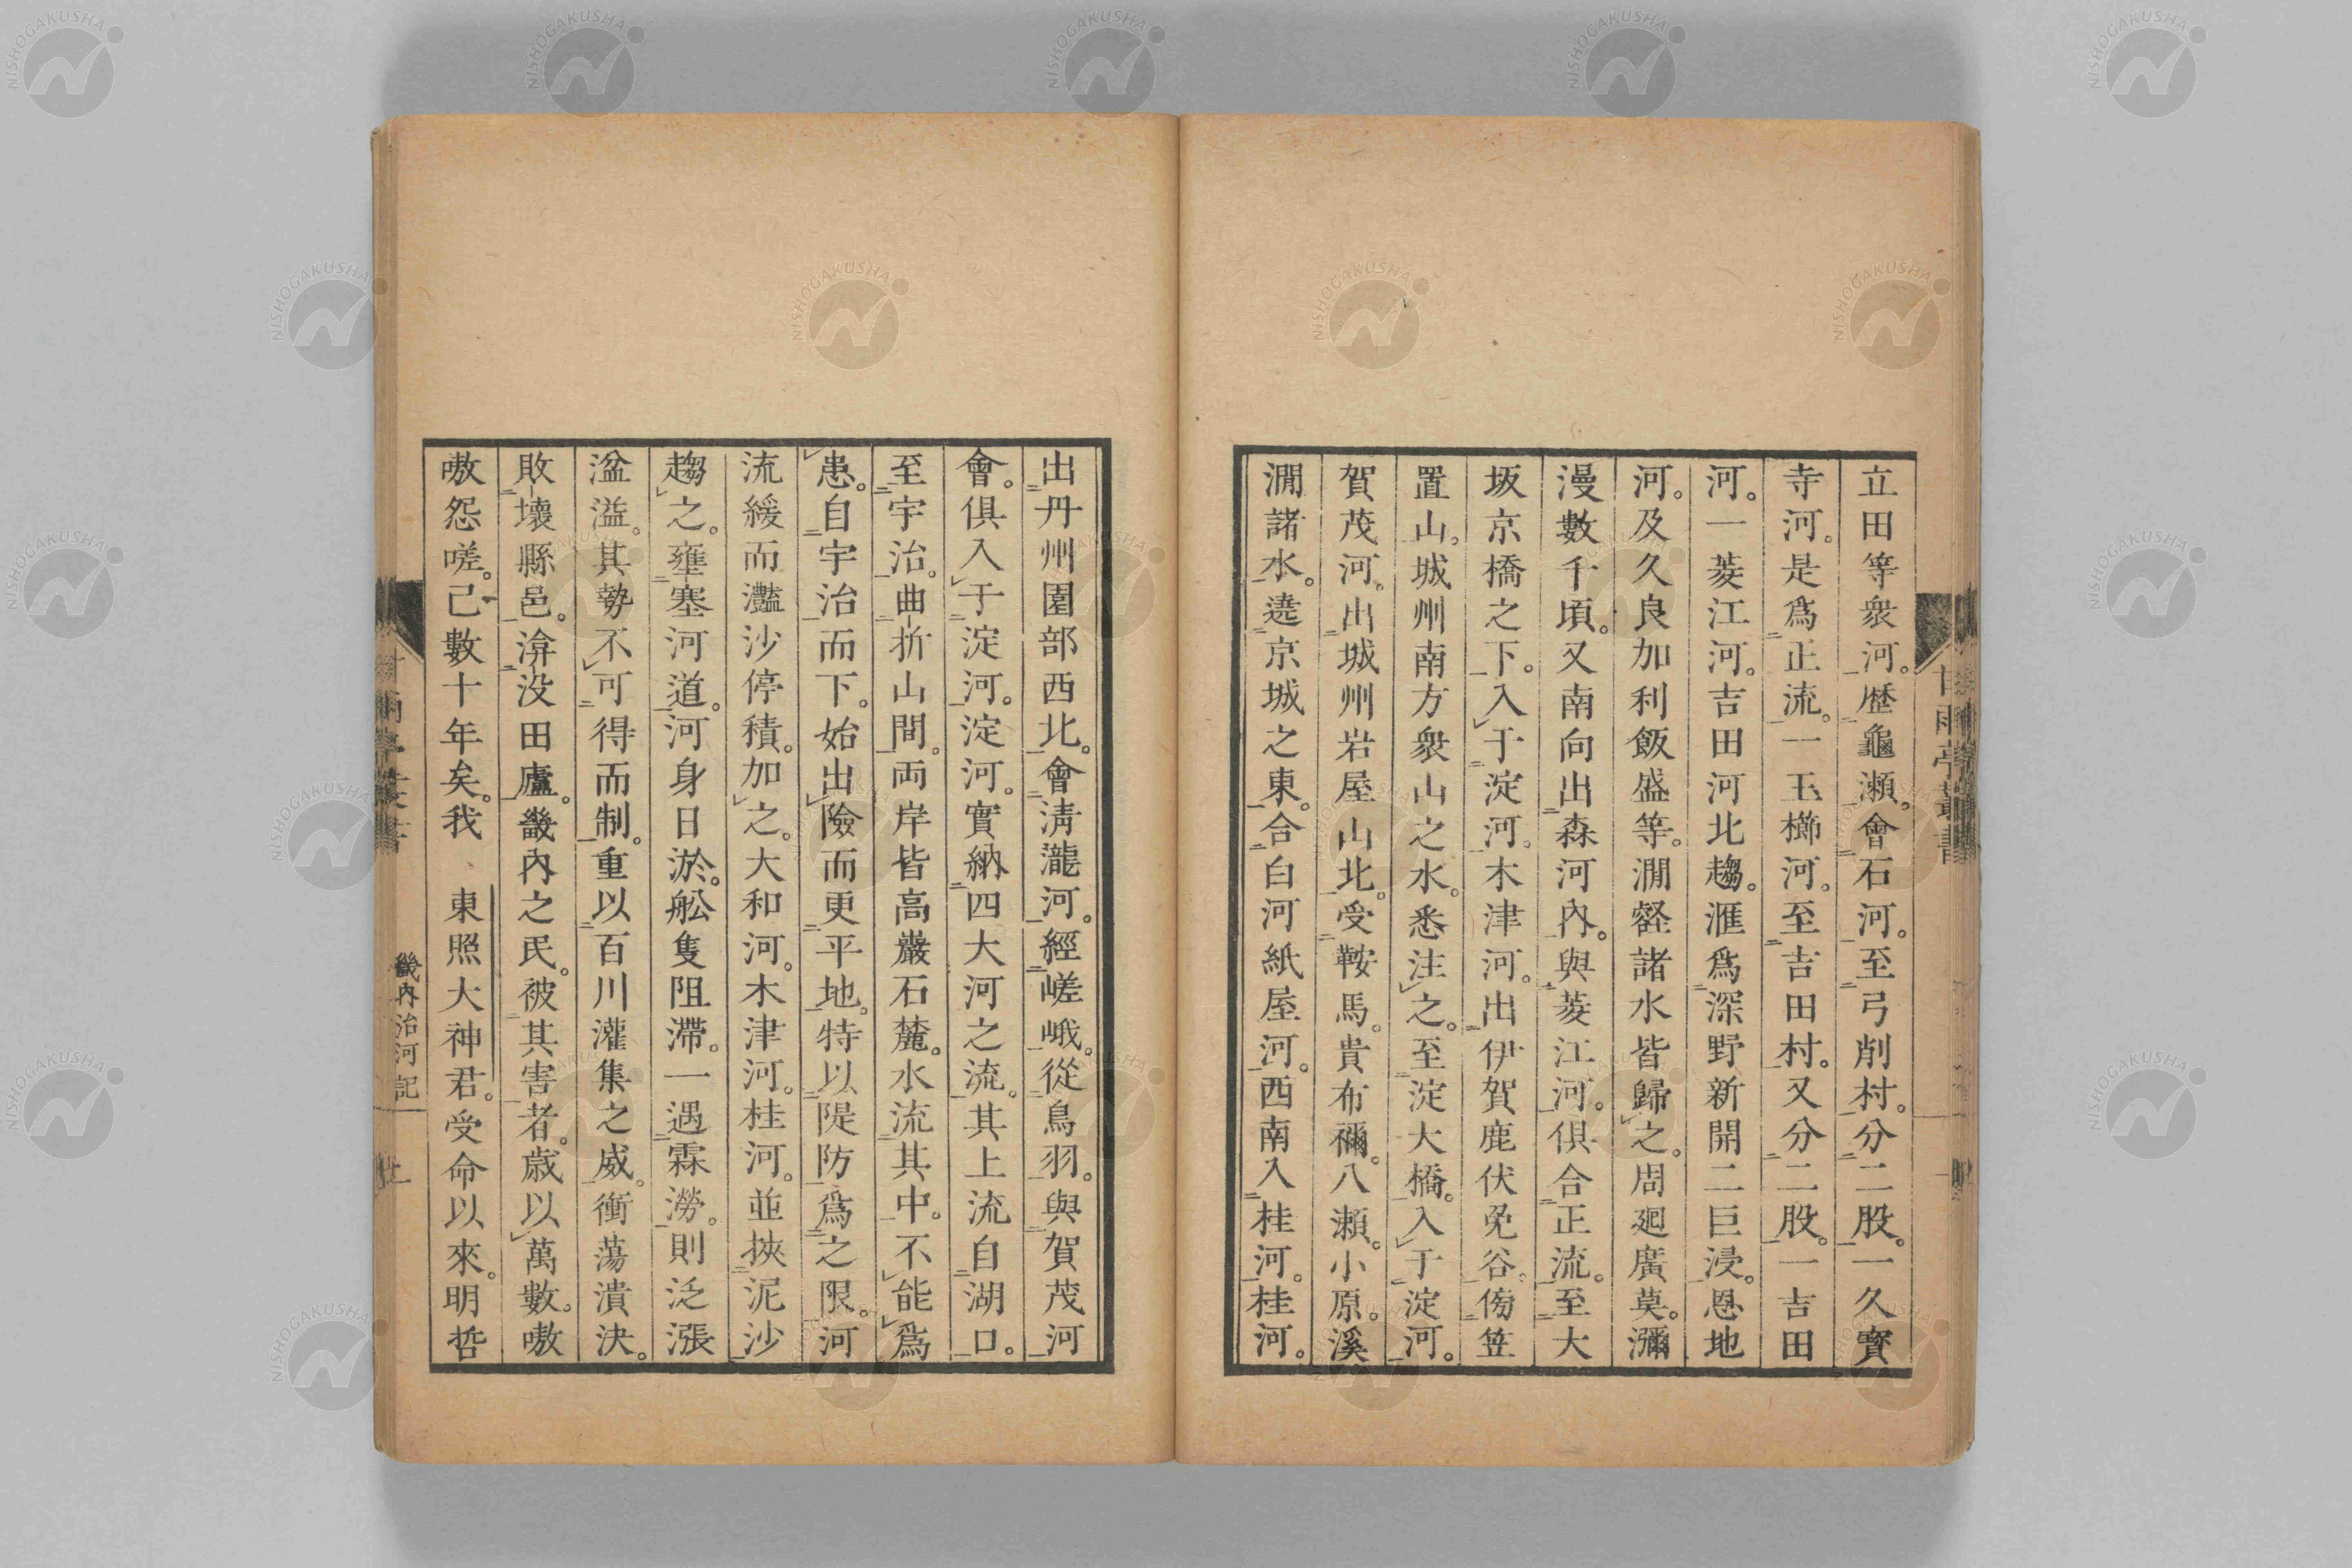 立田等衆河。歴龜瀬。會石河。至弓削村。分二股。一久寶
寺河。是爲正流。一玉櫛河。至吉田村。又分二股。一吉田
河。一菱江河。吉田河北趨。滙爲深野新開二巨浸。恩地
河。及久良加利飯盛等。澗壑諸水皆歸之。周廻廣莫。瀰
漫數千頃。又南向出森河內。與菱江河。俱合正流。至大
坂京橋之下。入于淀河。木津河。出伊賀鹿伏兔谷。傍笠
置山。城州南方衆山之水。悉注之。至淀大橋。入于淀河。
賀茂河。出城州岩屋山北。受鞍馬。貴布禰。八瀬。小原。溪
澗諸水。遶京城之東。合白河紙屋河。西南入桂河。桂河。
出丹州園部西北。會淸瀧河。經嵯峨。從鳥羽。與賀茂河
會。俱入于淀河。淀河。實納四大河之流。其上流自湖口。
至宇治。曲折山間。両岸皆高巖石麓。水流其中。不能爲
患。自宇治而下。始出險而更平地。特以隄防爲之限。河
流緩而灩沙停積。加之。大和河。木津河。桂河。並挾泥沙
趨之。壅塞河道。河身日淤。舩隻阻滯。一遇霖澇。則泛漲
湓溢。其勢不可得而制。重以百川灌集之威。衝蕩潰決。
敗壞縣邑。渰没田廬。畿內之民。被其害者。歳以萬數。嗷
嗷怨嗟。已數十年矣。我 東照大神君。受命以來。明哲
甘雨亭叢書
畿內治河記